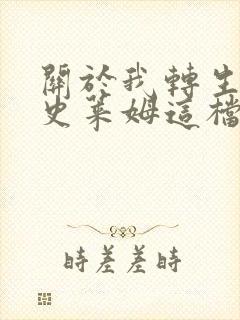 關於我轉生
史萊姆這檔
時差差時